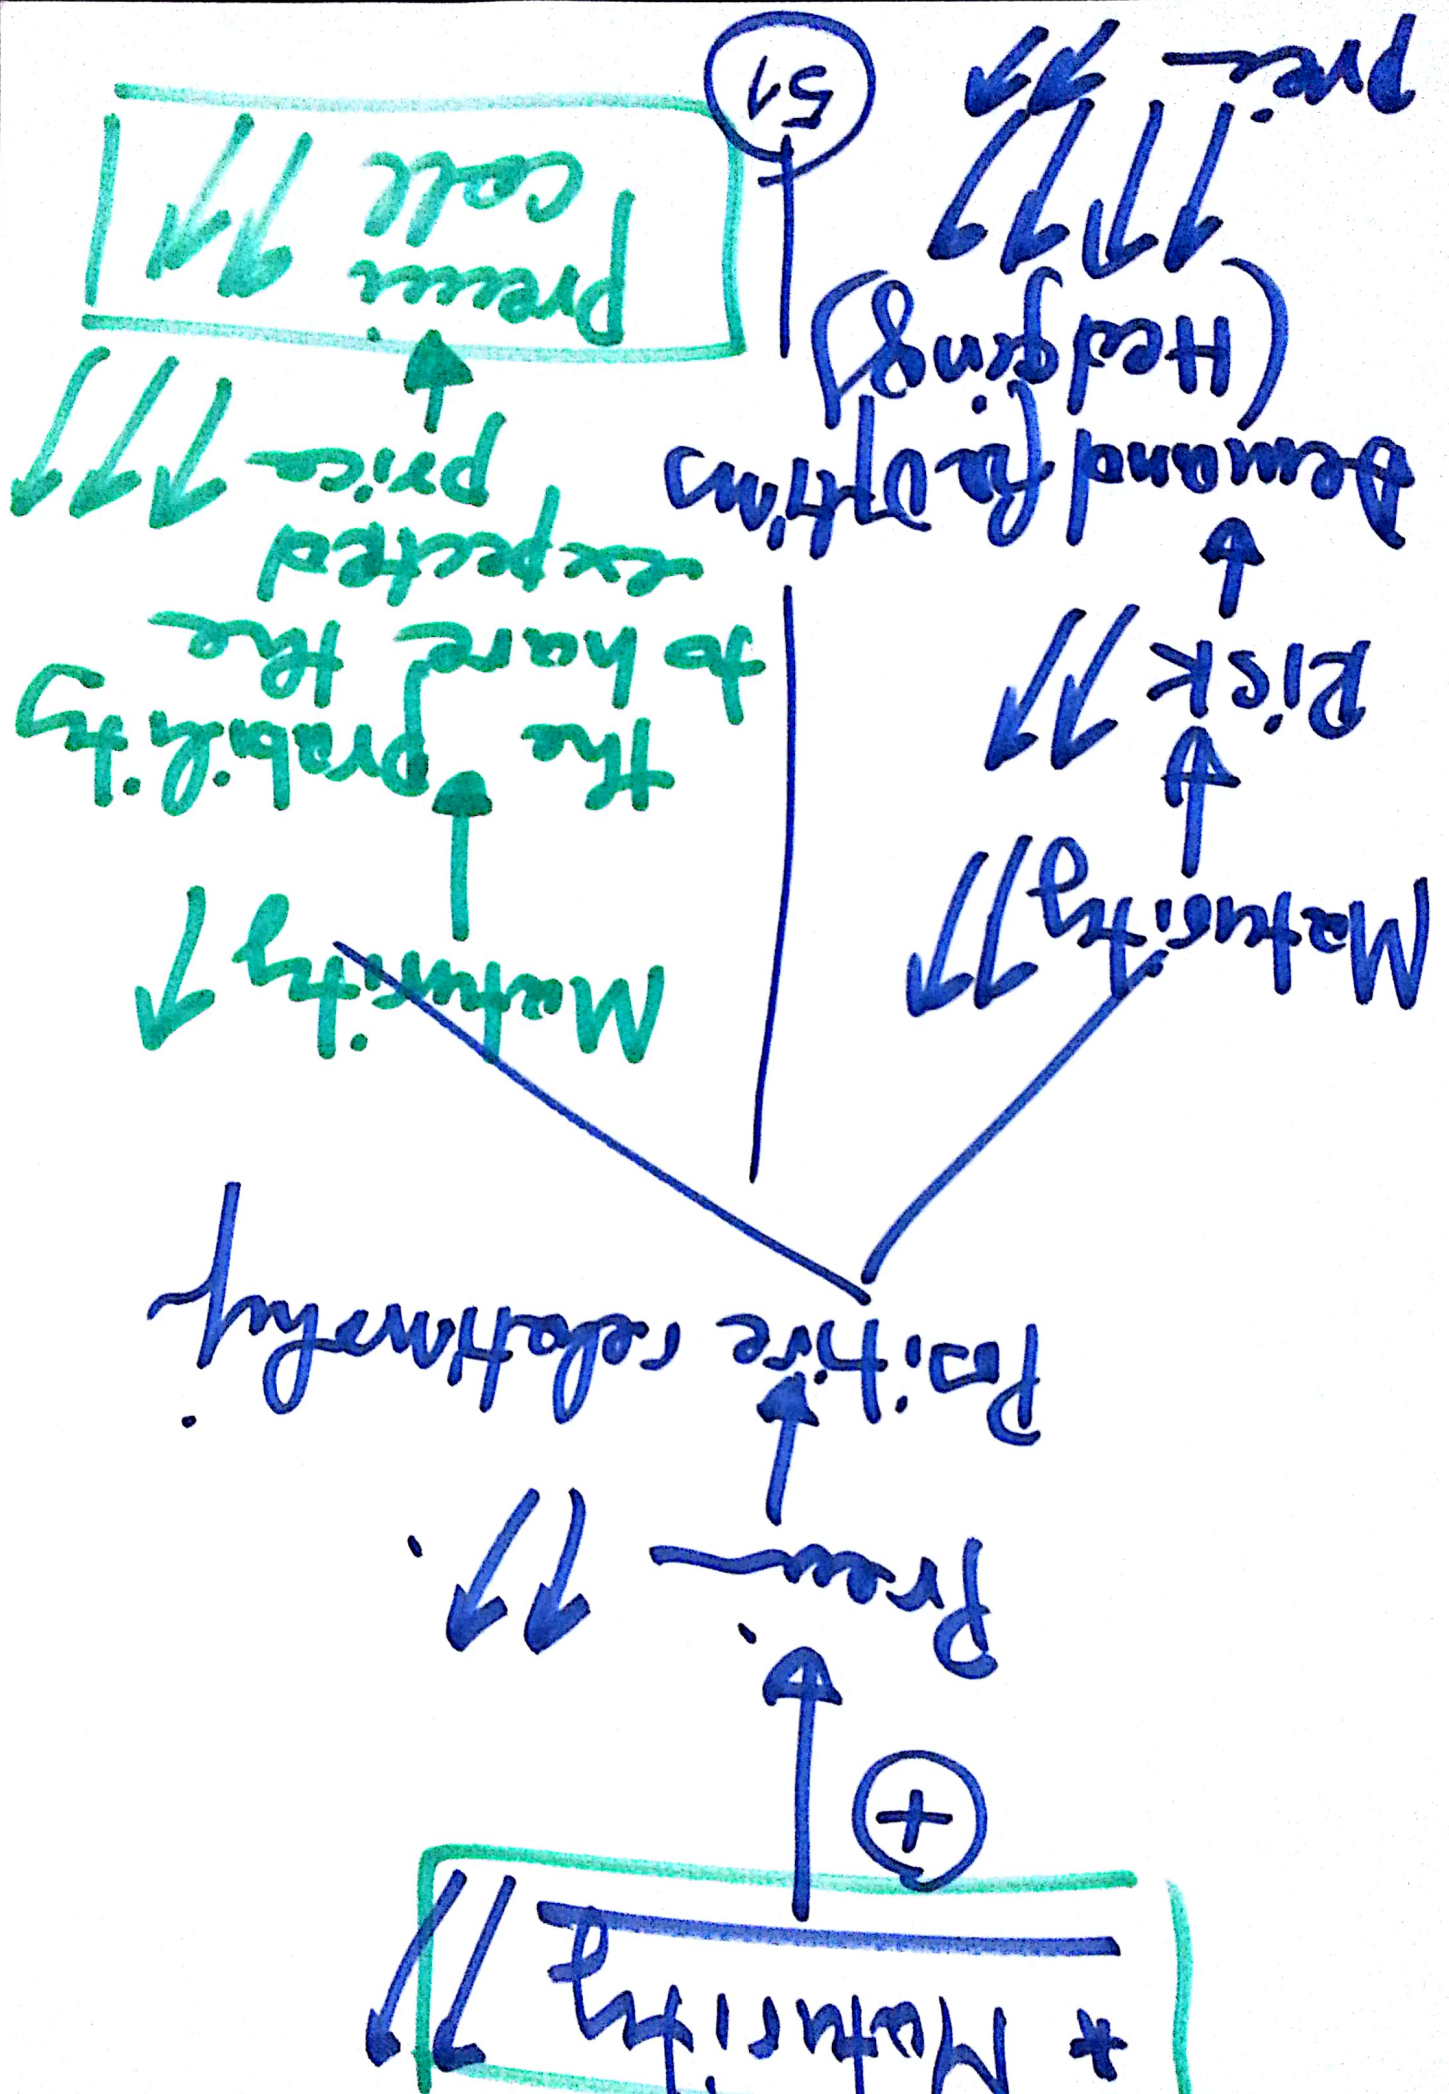 * Maturity ↑↑
+
Prem. ↑↑.
Positive relationship.
Maturity ↑↑
Risk ↑↑
Demand for Options
(Hedging) ↑↑↑↑
prem ↑↑
Maturity ↑
the probability
to have the
expected
price ↑↑↑
premi ↑↑
call
51